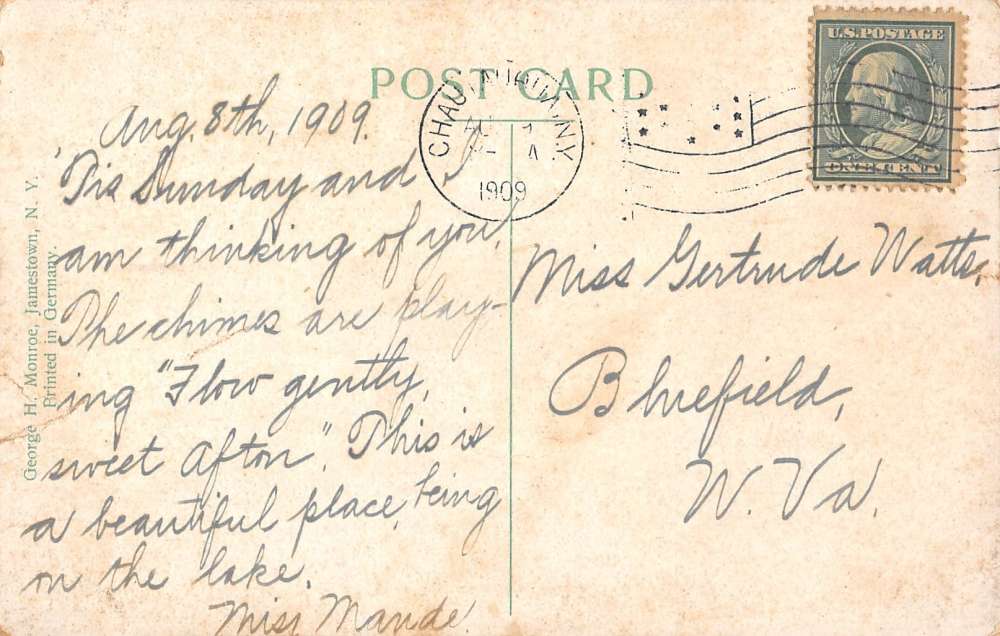 POST CARD
U.S. POSTAGE
ONE CENT
CHAUTAUQUA, N.Y.
1909
Aug. 8th, 1909.
'Tis Sunday and I
am thinking of you.
The chimes are play-
ing "Flow gently,
sweet Afton". This is
a beautiful place, being
on the lake.
Miss Maude.
Miss Gertrude Watts,
Bluefield,
W. Va.
George H. Monroe, Jamestown, N. Y.
Printed in Germany.